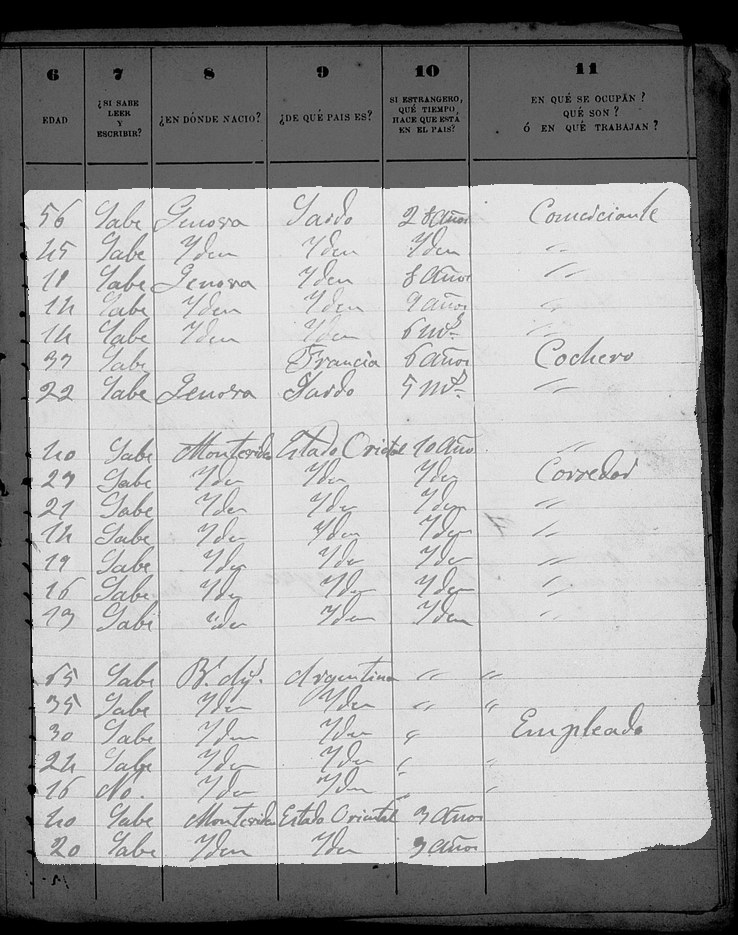 6 7 8 9 10 11
EDAD ¿SI SABE LEER Y ESCRIBIR? ¿EN DÓNDE NACIO? ¿DE QUÉ PAIS ES? SI ESTRANGERO, QUÉ TIEMPO HACE QUE ESTÁ EN EL PAIS? EN QUÉ SE OCUPAN? QUÉ SON? Ó EN QUÉ TRABAJAN?
56 Sabe Genova Sardo 28 años Comerciante
45 Sabe Yden Yden Yden "
18 Sabe Genova Yden 8 años "
14 Sabe Yden Yden 9 años "
14 Sabe Yden Yden 6 ms "
37 Sabe Francia 6 años Cochero
22 Sabe Genova Sardo 5 ms "
40 Sabe Montevideo Estado Oriental 10 años "
27 Sabe Yden Yden Yden Corredor
21 Sabe Yden Yden Yden "
14 Sabe Yden Yden Yden "
19 Sabe Yden Yden Yden "
16 Sabe Yden Yden Yden "
13 Sabe Yden Yden Yden "
65 Sabe Bs. Ays. Argentina " "
35 Sabe Yden Yden " "
30 Sabe Yden Yden " Empleado
24 Sabe Yden Yden " "
16 No. Yden Yden " "
40 Sabe Montevideo Estado Oriental 3 años
20 Sabe Yden Yden 3 años